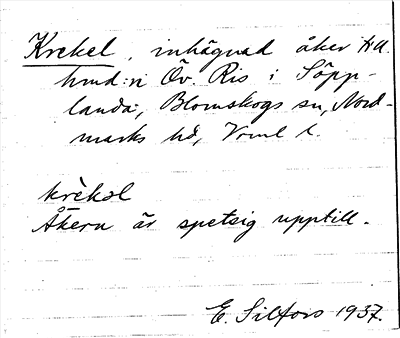 Krekel, inhägnad åker t. u.
hmd:n Öv. Ris i Söpp-
landa:, Blomskogs sn, Nord-
marks hd, Vrml l.
krèkəl
Åkern är spetsig upptill.
E. Silfors 1937.